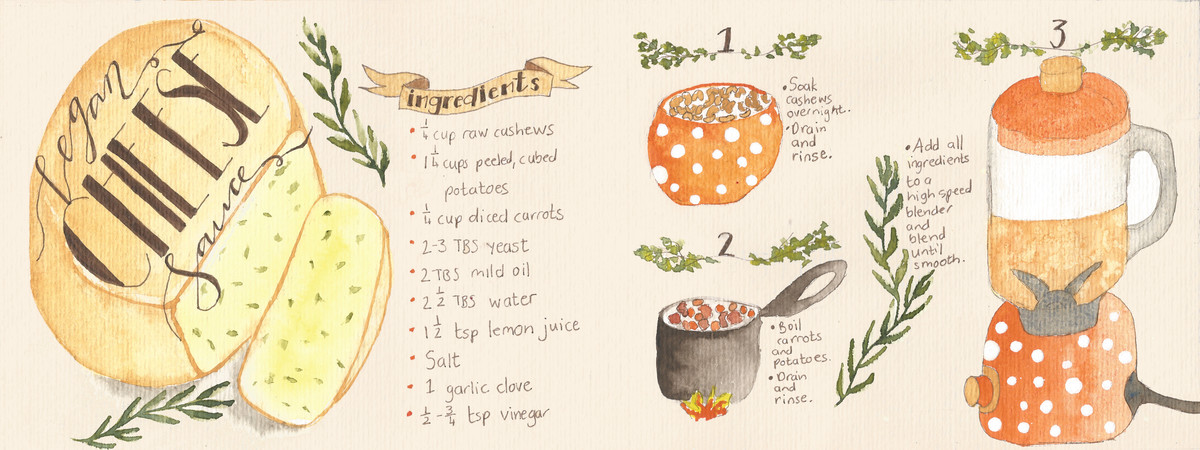 Vegan
CHEESE
Sauce
ingredients
• 1/4 cup raw cashews
• 1 1/4 cups peeled, cubed
potatoes
• 1/4 cup diced carrots
• 2-3 TBS yeast
• 2 TBS mild oil
• 2 1/2 TBS water
• 1 1/2 tsp lemon juice
• Salt
• 1 garlic clove
• 1/2 - 3/4 tsp vinegar
1
• Soak
cashews
overnight.
• Drain
and
rinse.
2
• Boil
carrots
and
potatoes.
• Drain
and
rinse.
3
• Add all
ingredients
to a
high speed
blender
and
blend
until
smooth.